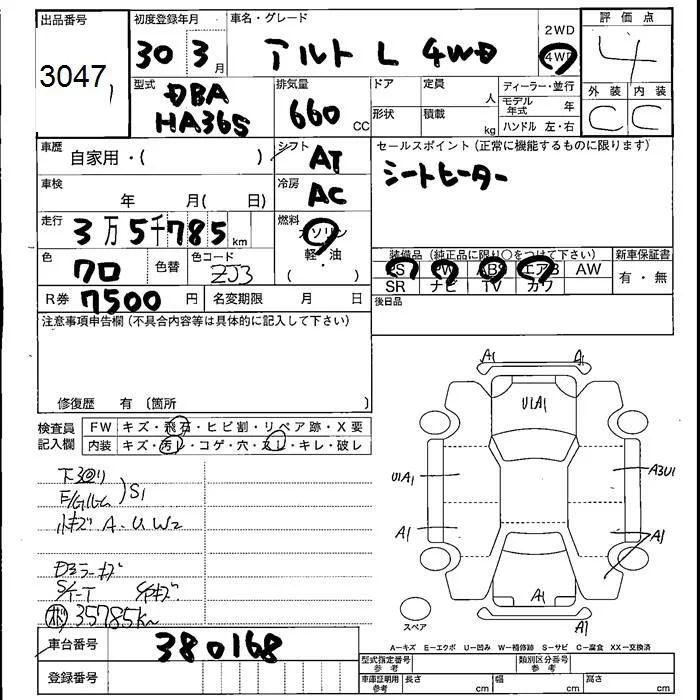 出品番号
3047
初度登録年月
30 3月
車名・グレード
アルト L 4WD
2WD
4WD
評価点
4
外装 内装
C C
型式
DBA
HA36S
排気量
660 CC
ドア
形状
定員
人
積載
kg
ディーラー・並行
モデル年式 年
ハンドル 左・右
車歴
自家用・( )
シフト
AT
セールスポイント(正常に機能するものに限ります)
シートヒーター
車検
年 月( 日)
冷房
AC
走行
3万5千785 km
燃料
ガソリン
軽・油
( ・ )
色
クロ
色替
色コード
ZJ3
装備品(純正品に限り〇をつけて下さい)
PS PW ABS エアB AW
SR ナビ TV カワ
新車保証書
有・無
R券
7500 円
名変期限 月 日
後日品
注意事項申告欄(不具合内容等は具体的に記入して下さい)
修復歴 有 〔箇所 〕
検査員記入欄
FW キズ・飛石・ヒビ割・リペア跡・X要
内装 キズ・汚レ・コゲ・穴・スレ・キレ・破レ
下回り
E/Gルーム
S1
小キズ A-U W2
S/T-T
35785km
A1 A1
U1A1
U1A1
A3U1
A1
A1
A1
A1
スペア
A-キズ E-エクボ U-凹み W-補修跡 S-サビ C-腐食 XX-交換済
車台番号
380168
登録番号
型式指定番号
参考
類別区分番号
参考
車庫証明用
参考
長さ cm
幅 cm
高さ cm